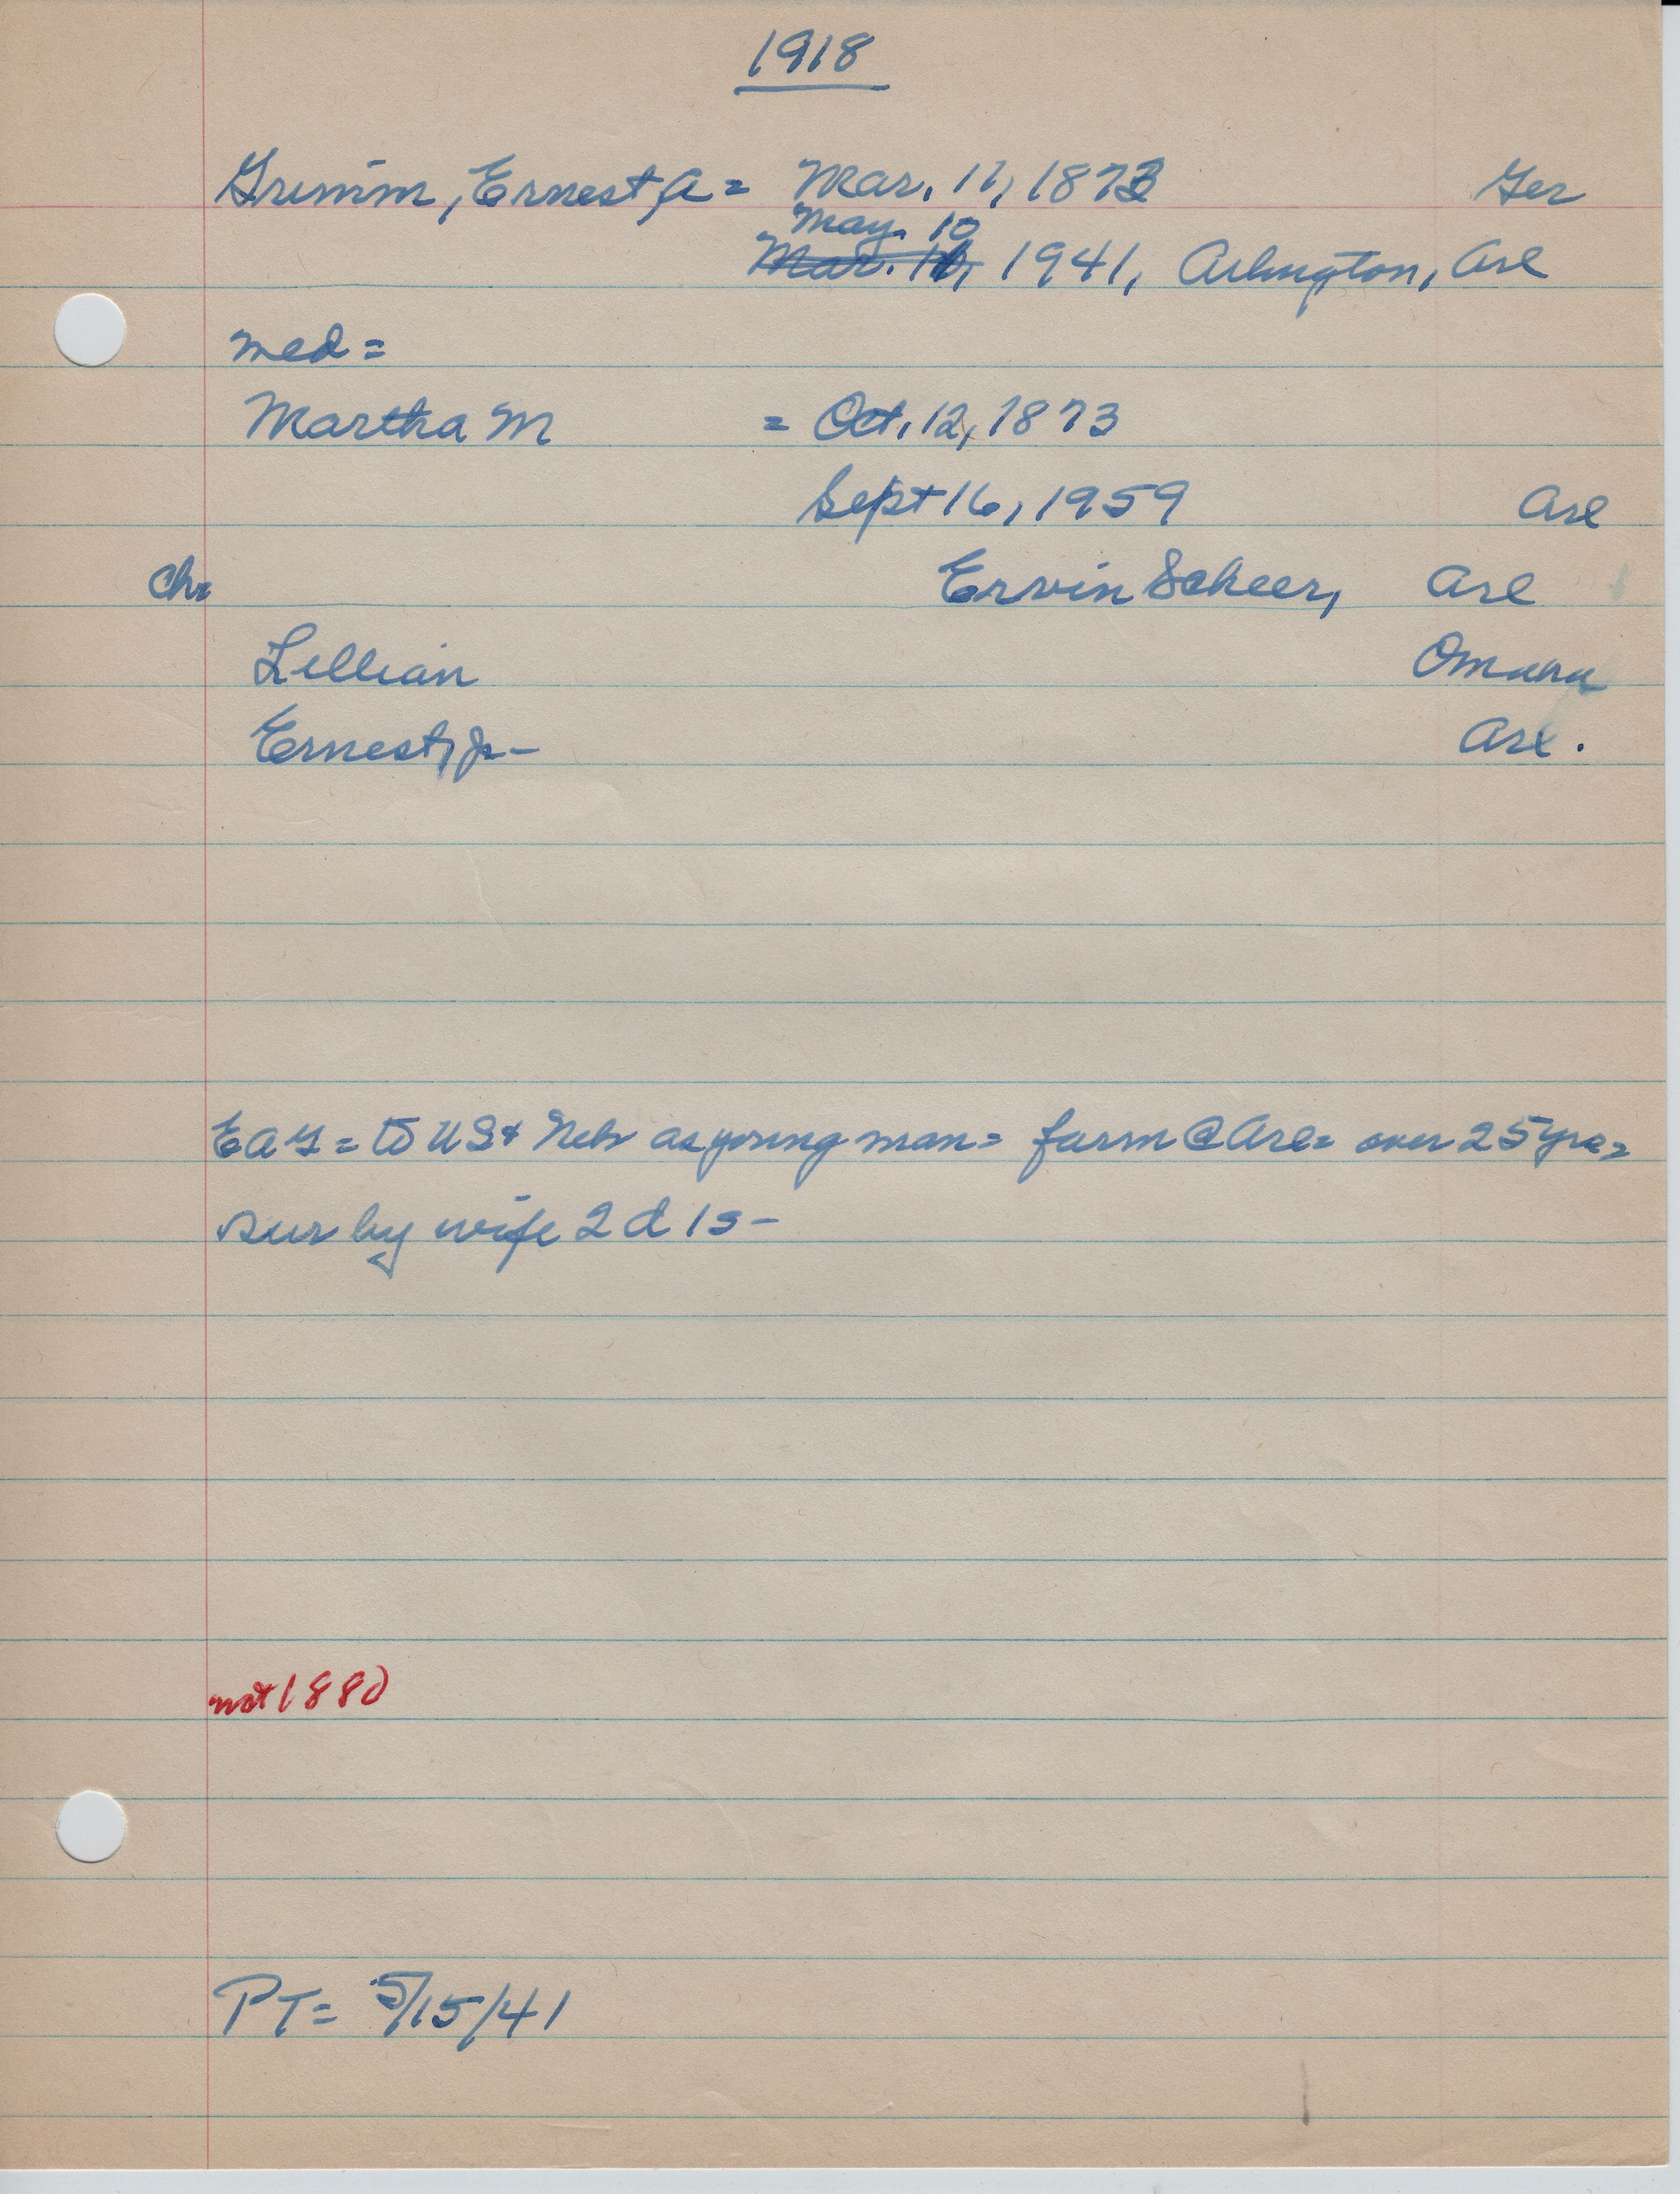 1918
Grimm, Ernest, A = Mar. 11, 1873 Ger
May. 10
Mar. 11, 1941, Arlington, Arl
med =
Martha M = Oct. 12, 1873
Sept 16, 1959 Arl
ch= Ervin Scheer, Arl
Lillian Omaha
Ernest, Jr - Arl.
EAG = to US & Neb as young man = farm @ Arl = over 25 yrs =
sur by wife 2 d 1 s -
not 1880
PT = 5/15/41